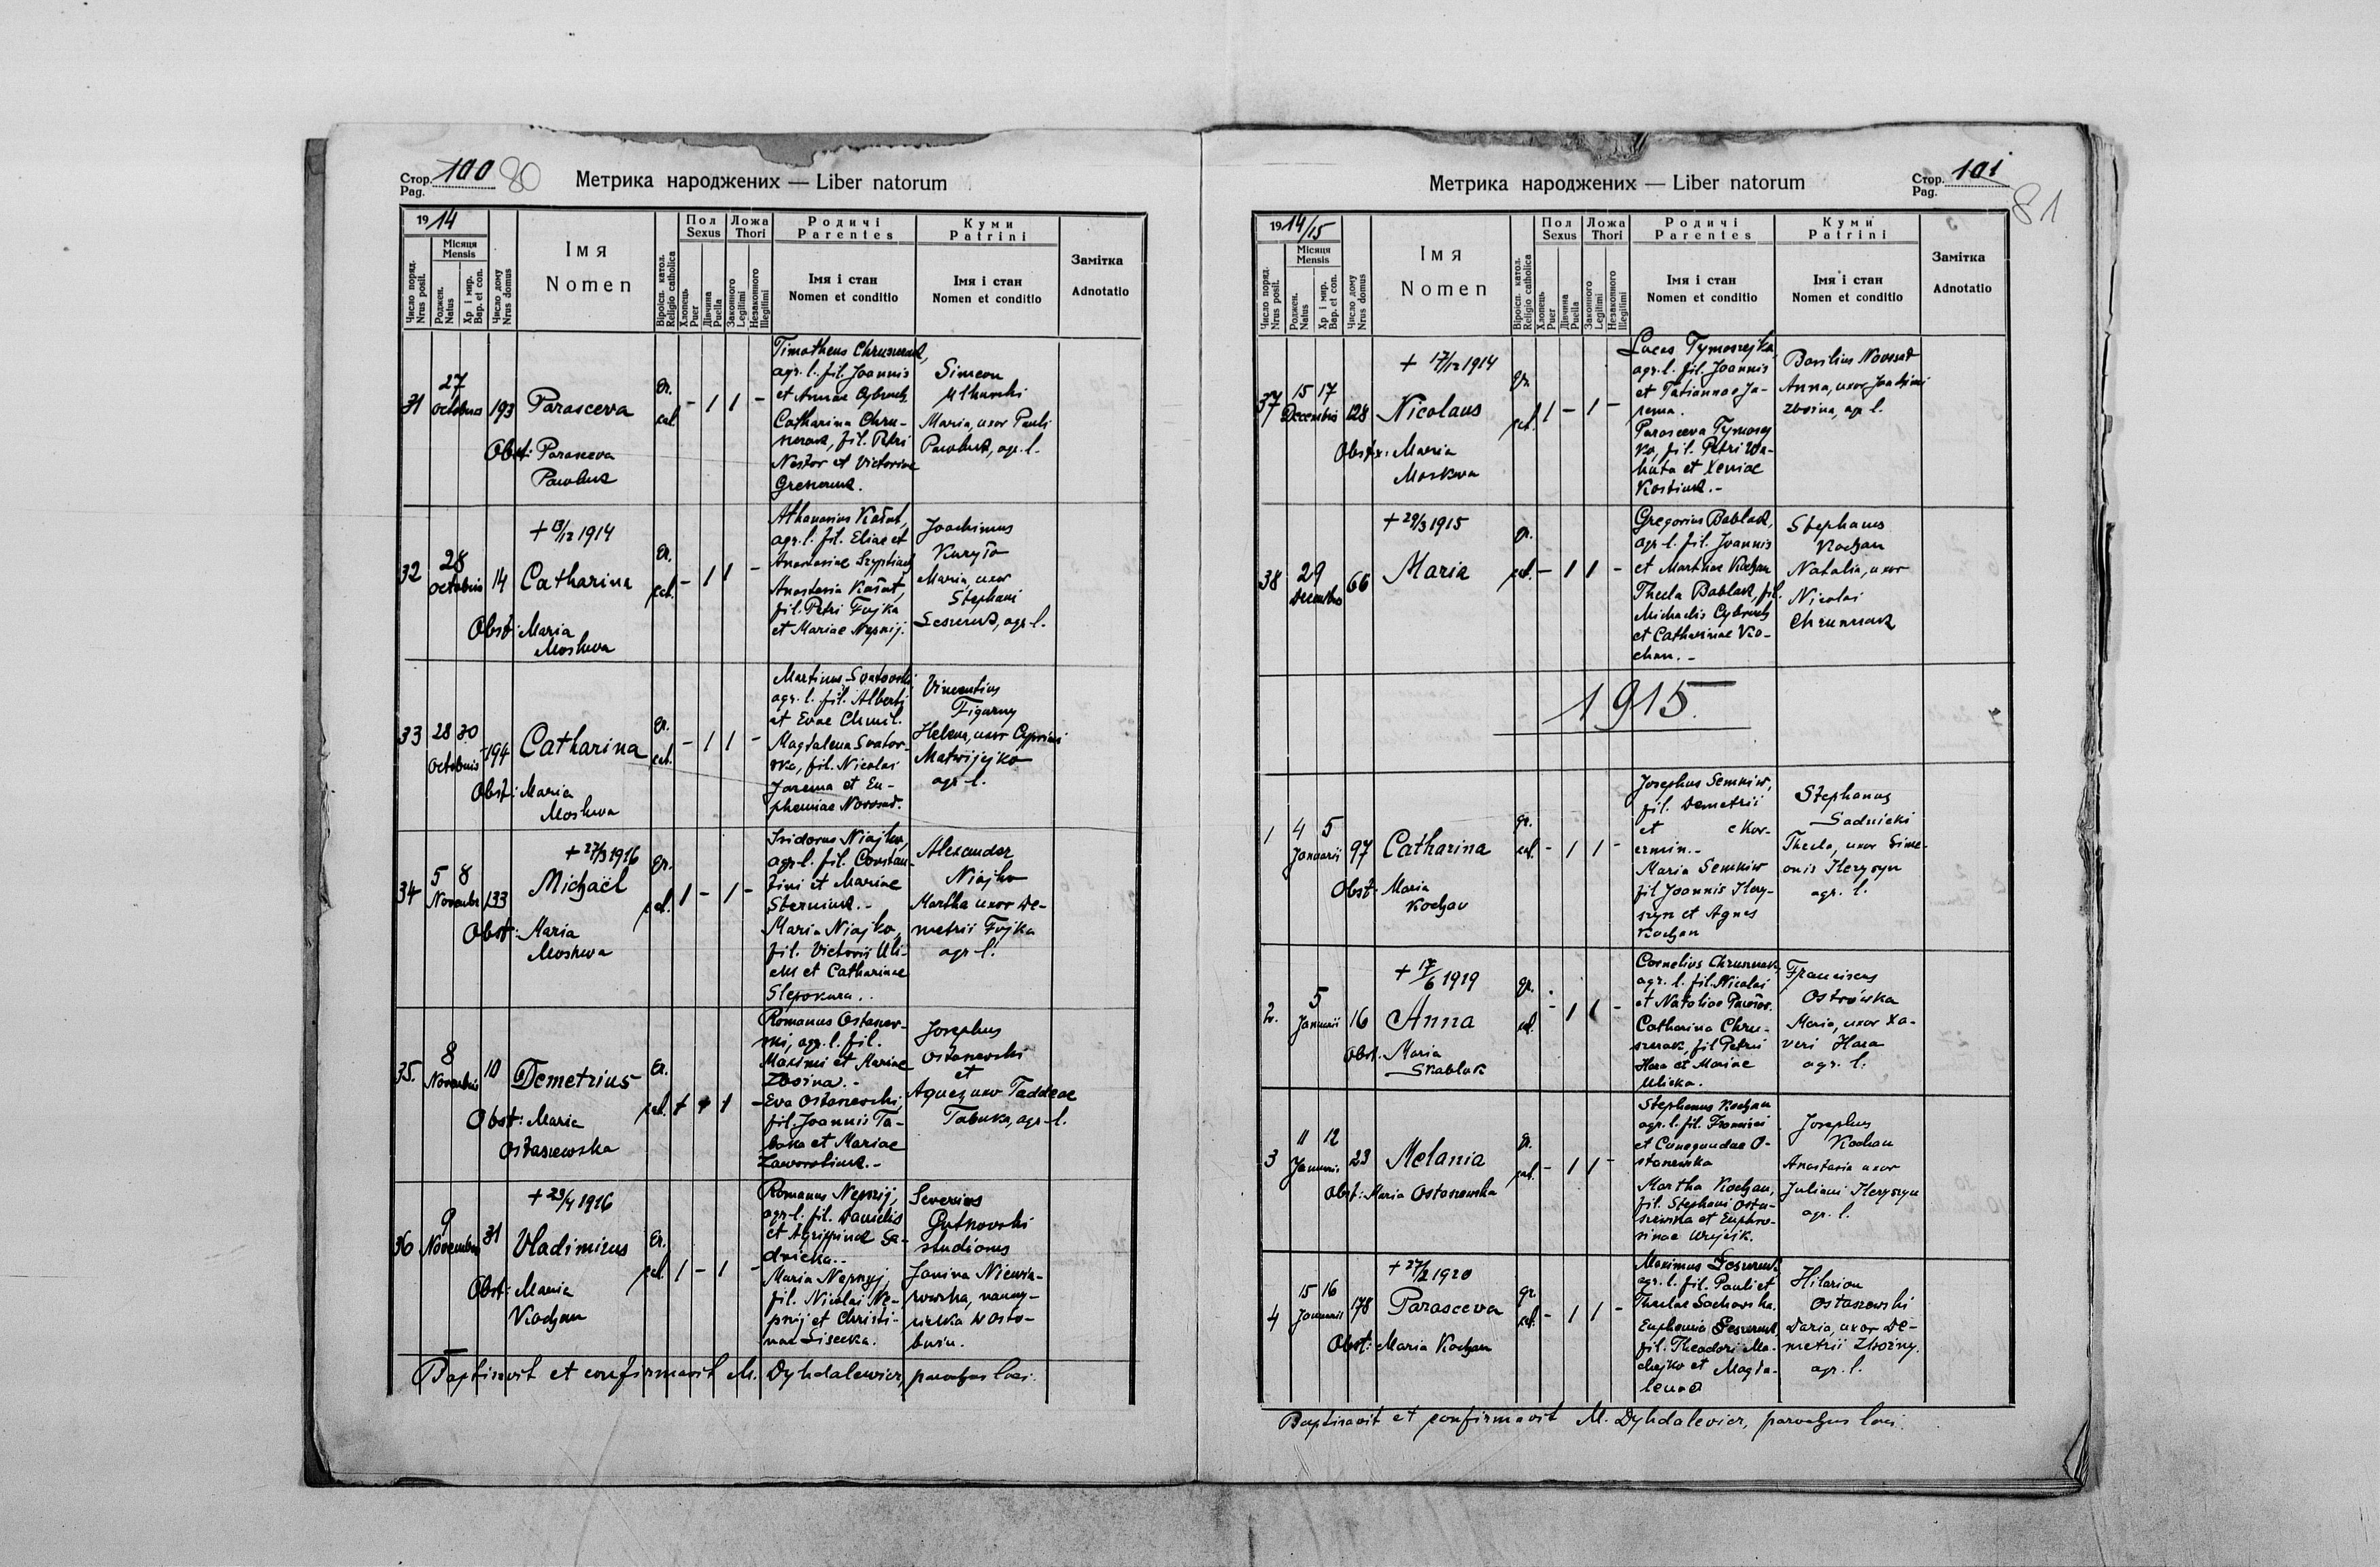 Стор. 100 80
Pag.
Метрика народжених — Liber natorum
19 14
Число поряд.
Nrus posit.
Місяця
Mensis
Роджен.
Natus
Хр і мир.
Bap. et con.
Число дому
Nrus domus
Імя
Nomen
Віроісп. катол.
Religio catholica
Пол
Sexus
Хлопець
Puer
Дївчина
Puella
Ложа
Thori
Законного
Legitimi
Незаконного
Illegitimi
Родичі
Parentes
Імя і стан
Nomen et conditio
Куми
Patrini
Імя і стан
Nomen et conditio
Замітка
Adnotatio
31
27
Octobris
193
Parasceva
Gr.
cat.
- 1 1 -
Obst: Parasceva
Pawluk
Timotheus
agr. l. fil. Joannis
et Annae
Catharina Chru-
fil. Petri
Nestor et Victoriae
Simeon
Maria, uxor Pauli
Pawluk, agr. l.
32
28
Octobris
14
+ 13/12 1914
Catharina
Gr.
cat.
- 1 1 -
Obst: Maria
Moskwa
Athanasius
agr. l. fil. Eliae et
Anastasiae
Anastasia
fil. Petri Fujka
et Mariae Nepnij.
Joachimus
Kuryło
Maria, uxor
Stephani
agr. l.
33
28 30
Octobris
194
Catharina
Gr.
cat.
- 1 1 -
Obst: Maria
Moskwa
Martinus
agr. l. fil. Alberti
et Evae Chmil.
Magdalena
fil. Nicolai
Jarema et Eu-
phemiae Nowosad.
Vincentius
Figurny
Helena, uxor Cypriani
Matwijejko
agr. l.
34
5 8
Novembr
133
+ 27/3 1916
Michaël
Gr.
cat.
1 - 1 -
Obst: Maria
Moskwa
Isidorus Niajko,
agr. l. fil. Constan-
tini et Mariae
Maria Niajko,
fil. Victorii
et Catharinae
Slepokura.
Alexander
Niajko
Martha uxor De-
metrii Fujka
agr l.
35.
8
Novembris
10
Demetrius
Gr.
cat.
Obst: Maria
Ostaszewska
Romanus Ostaszew-
ski, agr. l. fil.
Maximi et Mariae
Eva Ostaszewski,
fil. Joannis Ta-
baka et Mariae
Josephus
Ostaszewski
et
Agnes, uxor Taddeae
agr. l.
36
9
Novembris
31
+ 23/4 1916
Vladimirus
Gr.
cat.
1 - 1 -
Obst: Maria
Kochan
Romanus Nepnij,
agr. l. fil. Danielis
et Sa-
dnicka.
Maria Nepnyj,
fil. Nicolai Ne-
pnij et Christi-
nae
Severinus
Gutkowski
studiosus
Janina
Baptisavit et confirmavit M. Dyhdalewicz, parochus loci.
Стор. 101
Pag.
81
Метрика народжених — Liber natorum
19 14/15
Число поряд.
Nrus posit.
Місяця
Mensis
Роджен.
Natus
Хр і мир.
Bap. et con.
Число дому
Nrus domus
Імя
Nomen
Віроісп. катол.
Religio catholica
Пол
Sexus
Хлопець
Puer
Дївчина
Puella
Ложа
Thori
Законного
Legitimi
Незаконного
Illegitimi
Родичі
Parentes
Імя і стан
Nomen et conditio
Куми
Patrini
Імя і стан
Nomen et conditio
Замітка
Adnotatio
37
15 17
Decembris
128
+ 17/12 1914
Nicolaus
gr.
cat.
1 - 1 -
Obstx: Maria
Moskwa
Lucas Tymoszejko,
agr. l. fil. Joannis
et Tatiannae Ja-
rema.
Parasceva Tymoszej
ko, fil. Petri
et Xeniae
Kostiuk.-
Basilius Nowosad
Anna, uxor Joachimi
agr l.
38
29
Decembris
66
+ 29/3 1915
Maria
gr.
cat.
- 1 1 -
Gregorius Bablak,
agr. l. fil. Joannis
et Marthae Kochan
Thecla Bablak, fil.
Michaelis
et Catharinae Ko-
chan. -
Stephanus
Kochan
Natalia, uxor
Nicolai
1915.
1
4 5
Januarii
97
Catharina
gr.
cat.
- 1 1 -
Obst: Maria
Kochan
Josephus Semkiw,
fil. Demetrii
et
Maria Semkiw
fil Joannis Hery-
szyn et Agnes
Kochan
Stephanus
Sadnicki
Thecla, uxor Sime-
onis Heryszyn
agr. l.
2.
5
Januarii
16
+ 17/6 1919
Anna
gr.
cat.
- 1 1 -
Obst: Maria
Skablak
Cornelius
agr. l. fil. Nicolai
et Nataliae
Catharina Chru-
fil Petri
Hara et Mariae
Ulicka.
Franciscus
Ostrówska
Maria, uxor Xa-
veri Hara
agr. l.
3
11 12
Januarii
23
Melania
gr.
cat.
- 1 1 -
Obst: Maria Ostaszewska
Stephanus Kochan
agr. l. fil. Francisci
et Cunegundae O-
staszewska
Martha Kochan,
fil. Stephani Osta-
szewska et Euphro-
sinae
Josephus
Kochan
Anastasia uxor
Juliani Heryszyn
agr. l.
4
15 16
Januarii
178
+ 27/2 1920
Parasceva
gr
cat.
- 1 1 -
Obst: Maria Kochan
Maximus
agr. l. fil. Pauli et
Theclae Sachowska.
Euphemia
fil. Theodori Ma-
chajko et Magda-
lenae
Hilarion
Ostaszewski
Daria, uxor De-
metrii
agr. l.
Baptisavit et confirmavit M. Dyhdalewicz, parochus loci.